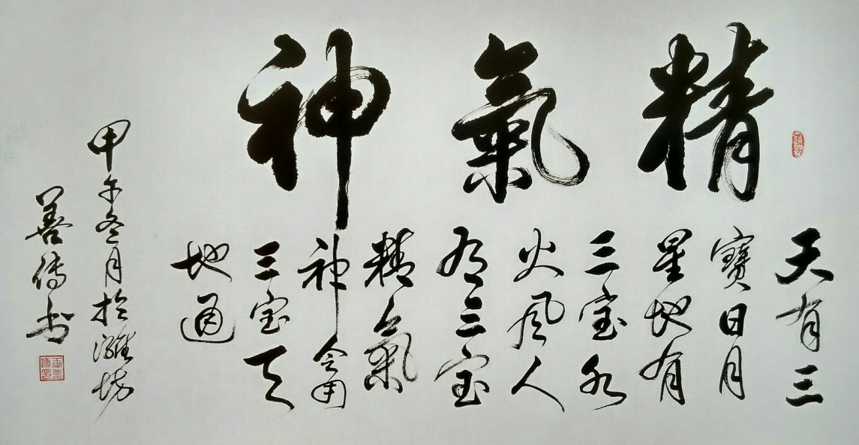 精氣神
天有三
寶日月
星地有
三宝水
火风人
有三宝
精氣
神會用
三宝天
地通
甲午冬月於潍坊
善传书